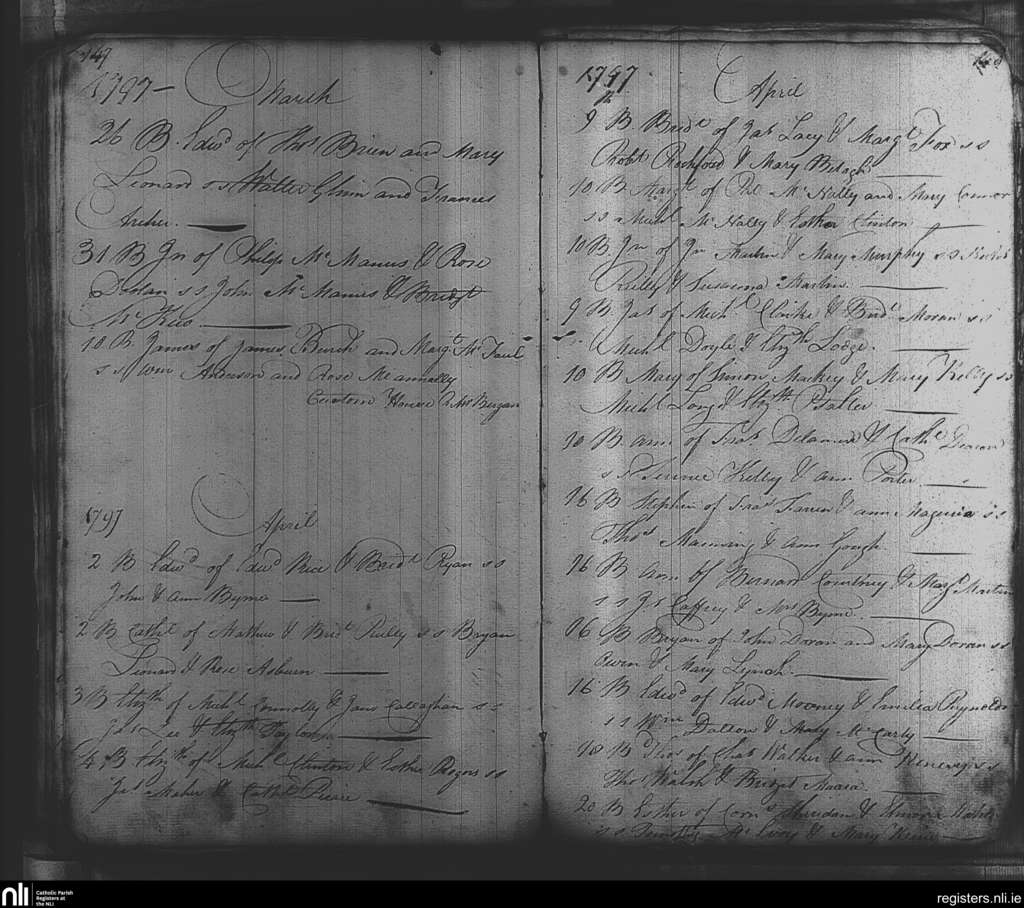 147
1797 - March
26 B. Edwd of Thos Brien and Mary
Leonard s s Walter Glinn and Frances
Archer.
31 B Jn of Philip Mc Manus & Rose
Dolan s s John Mc Manus & Bridgt
Mc
18 B James of James Burch and Margt Mc
s s Wm Anderson and Rose Mc annally
Custom House
1797 April
2 B Edwd of Edwd Rice & Bridt Ryan s s
John & ann Byrne
2 B Cathe of Mathew & Bridt Reilly s s Bryan
Leonard & Rose Asburn
3 B Elizth of Michl Connolly & Jane Callaghan s s
Jas Lee & Elizth
4 B Elizth of Michl Clinton & Esther Rogers s s
Jas Maher & Cathe
148
1797 April
9th B Bridt of Jas Lacy & Margt Fox s s
Robt Rochford & Mary
10 B Margt of Mc Nally and Mary Connor
s s Michl Mc Nally & Esther Clinton
10 B Jn of Jn Martin & Mary Murphy s s
Reilly & Susanna Martin.
9 B Jas of Michl Clarke & Bridt Moran s s
Michl Doyle & Elizth Lodge.
10 B Mary of Simon Mackey & Mary Kelly s s
Michl Long & Elizth
10 B ann of Fras Delamere & Cathe
s s Kelly & ann Porter
16 B Stephen of Fras Farren & ann Maguire s s
Thos & ann Gough
16 B ann of Bernard Courtney & Margt Martin
s s Js Caffrey & Mrs Byrne.
16 B Bryan of John Doran and Mary Doran s s
Owen & Mary Lynch.
16 B Edwd of Edwd Mooney & Emilia Reynolds
s s Wm Dalton & Mary Mc Carty
18 B Thos of Chas Walker & ann s s
Thos Walsh & Bridget Meara.
20 B Esther of Corns Sheridan &
s s Timothy Mc Evoy & Mary
nli Catholic Parish
Registers at
the NLI
registers.nli.ie